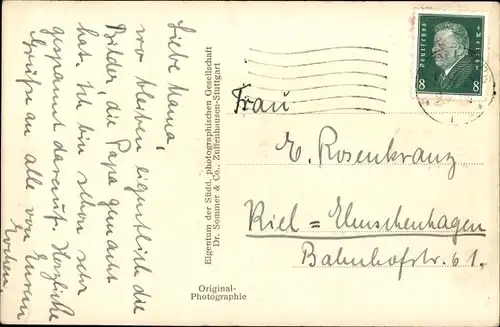 Liebe Mama,
wo bleiben eigentlich die
Bilder, die Papa gemacht
hat. Ich bin schon sehr
gespannt darauf. Herzliche
Grüße an alle von Eurem
Eigentum der Südd. photographischen Gesellschaft
Dr. Sommer & Co., Zuffenhausen-Stuttgart
Original-
Photographie
Deutsches Reich
8 8
Frau
E. Rosenkranz
Kiel = Elmschenhagen
Bahnhofstr. 61.